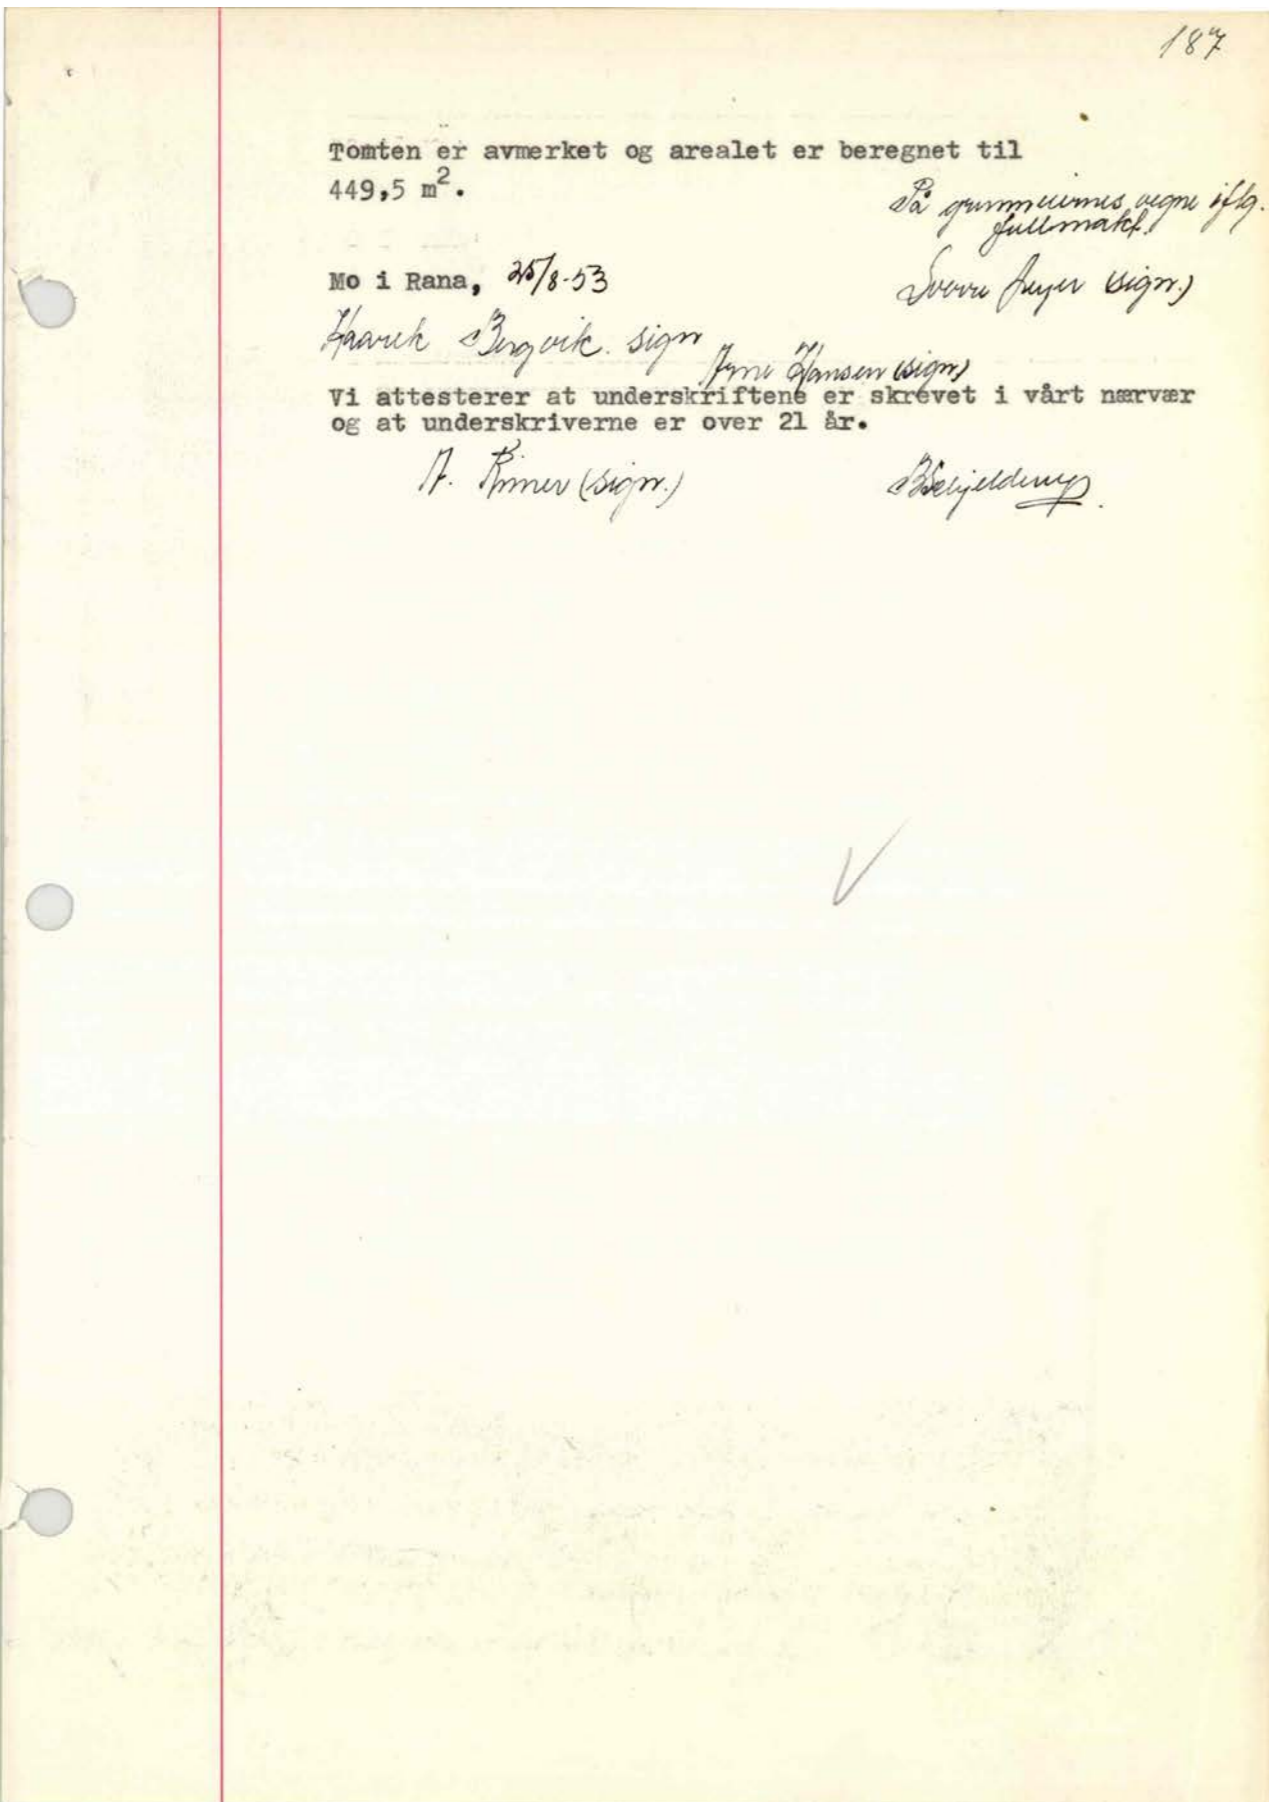 187
Tomten er avmerket og arealet er beregnet til
449,5 m².
På grunneiernes vegne iflg.
fullmakt.
Mo i Rana, 25/8-53
(sign.)
Haarek Bergvik. sign
Arne Hansen (sign)
Vi attesterer at underskriftene er skrevet i vårt nærvær
og at underskriverne er over 21 år.
A. (sign.)